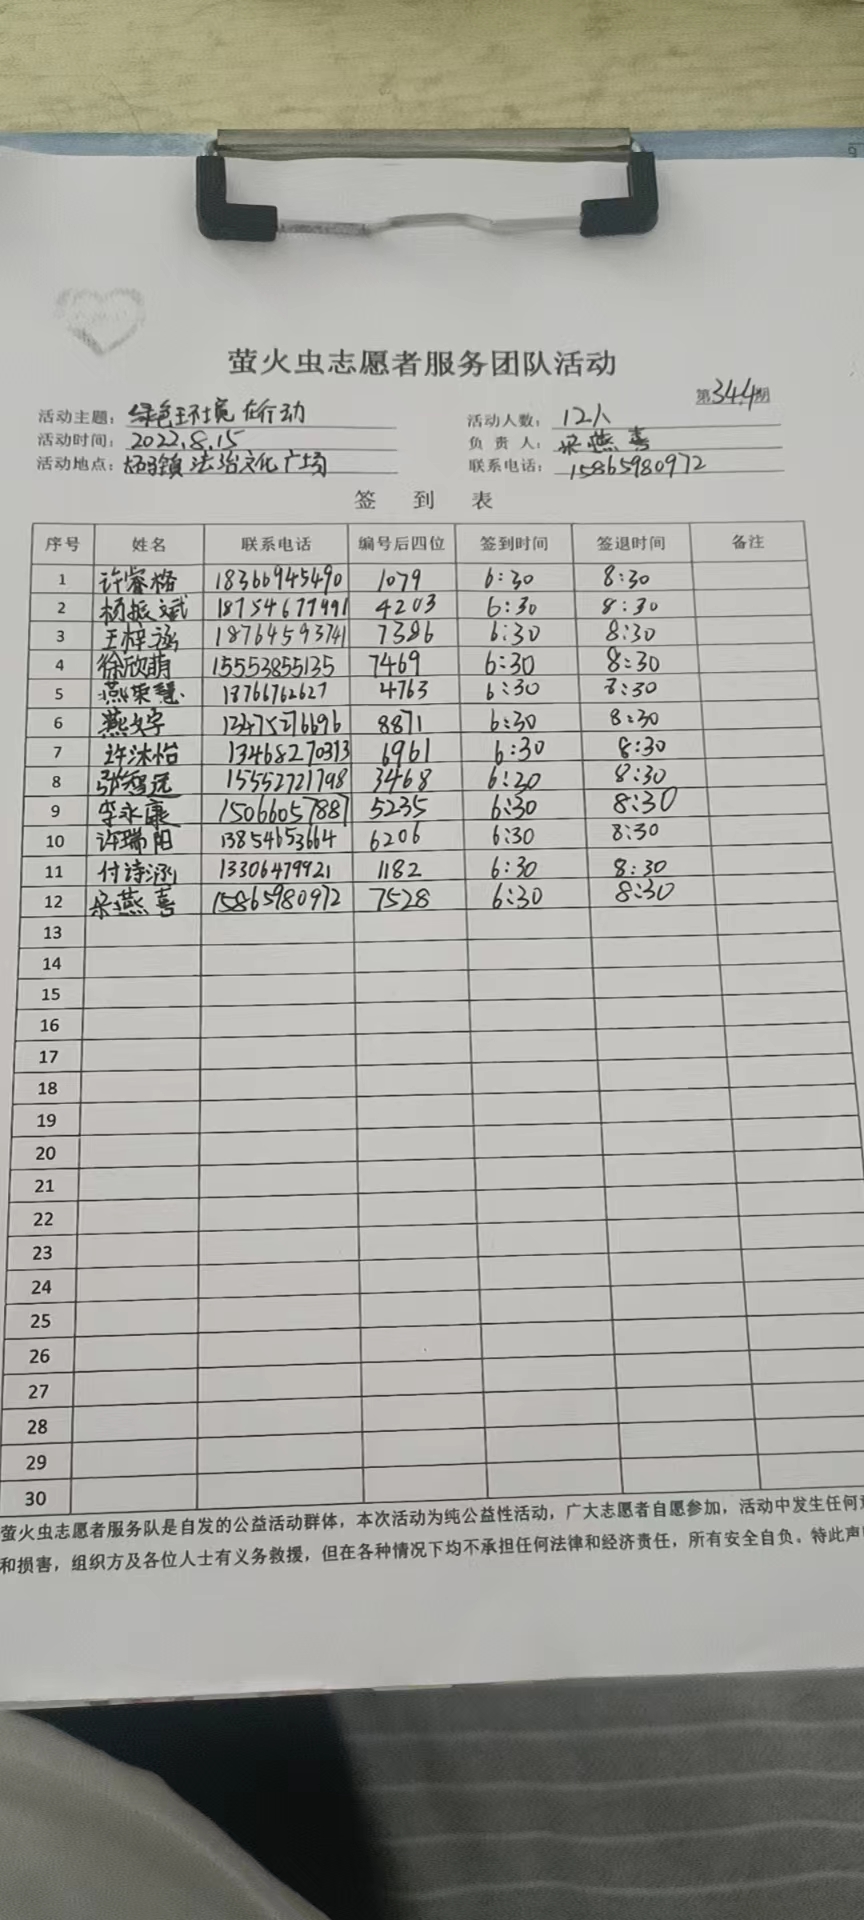 萤火虫志愿者服务团队活动
第344期
活动主题：绿色环境在行动 活动人数：12人
活动时间：2022.8.15 负责人：宋燕喜
活动地点：镇法治文化广场 联系电话：15865980972
签 到 表
序号 姓名 联系电话 编号后四位 签到时间 签退时间 备注
1 许睿格 18366945490 1079 6:30 8:30
2 杨振斌 18754677491 4203 6:30 8:30
3 王梓涵 18764593741 7386 6:30 8:30
4 徐欣萌 15553855135 7469 6:30 8:30
5 燕荣慧 18766762627 4763 6:30 8:30
6 燕文宇 13475276696 8871 6:30 8:30
7 许沐怡 13468270313 6961 6:30 8:30
8 张智远 15552721798 3468 6:20 8:30
9 李永康 15066057887 5235 6:30 8:30
10 许瑞阳 13854653664 6206 6:30 8:30
11 付诗涵 13306479921 1182 6:30 8:30
12 宋燕喜 15865980972 7528 6:30 8:30
13
14
15
16
17
18
19
20
21
22
23
24
25
26
27
28
29
30
萤火虫志愿者服务队是自发的公益活动群体，本次活动为纯公益性活动，广大志愿者自愿参加，活动中发生任何
和损害，组织方及各位人士有义务救援，但在各种情况下均不承担任何法律和经济责任，所有安全自负。特此声